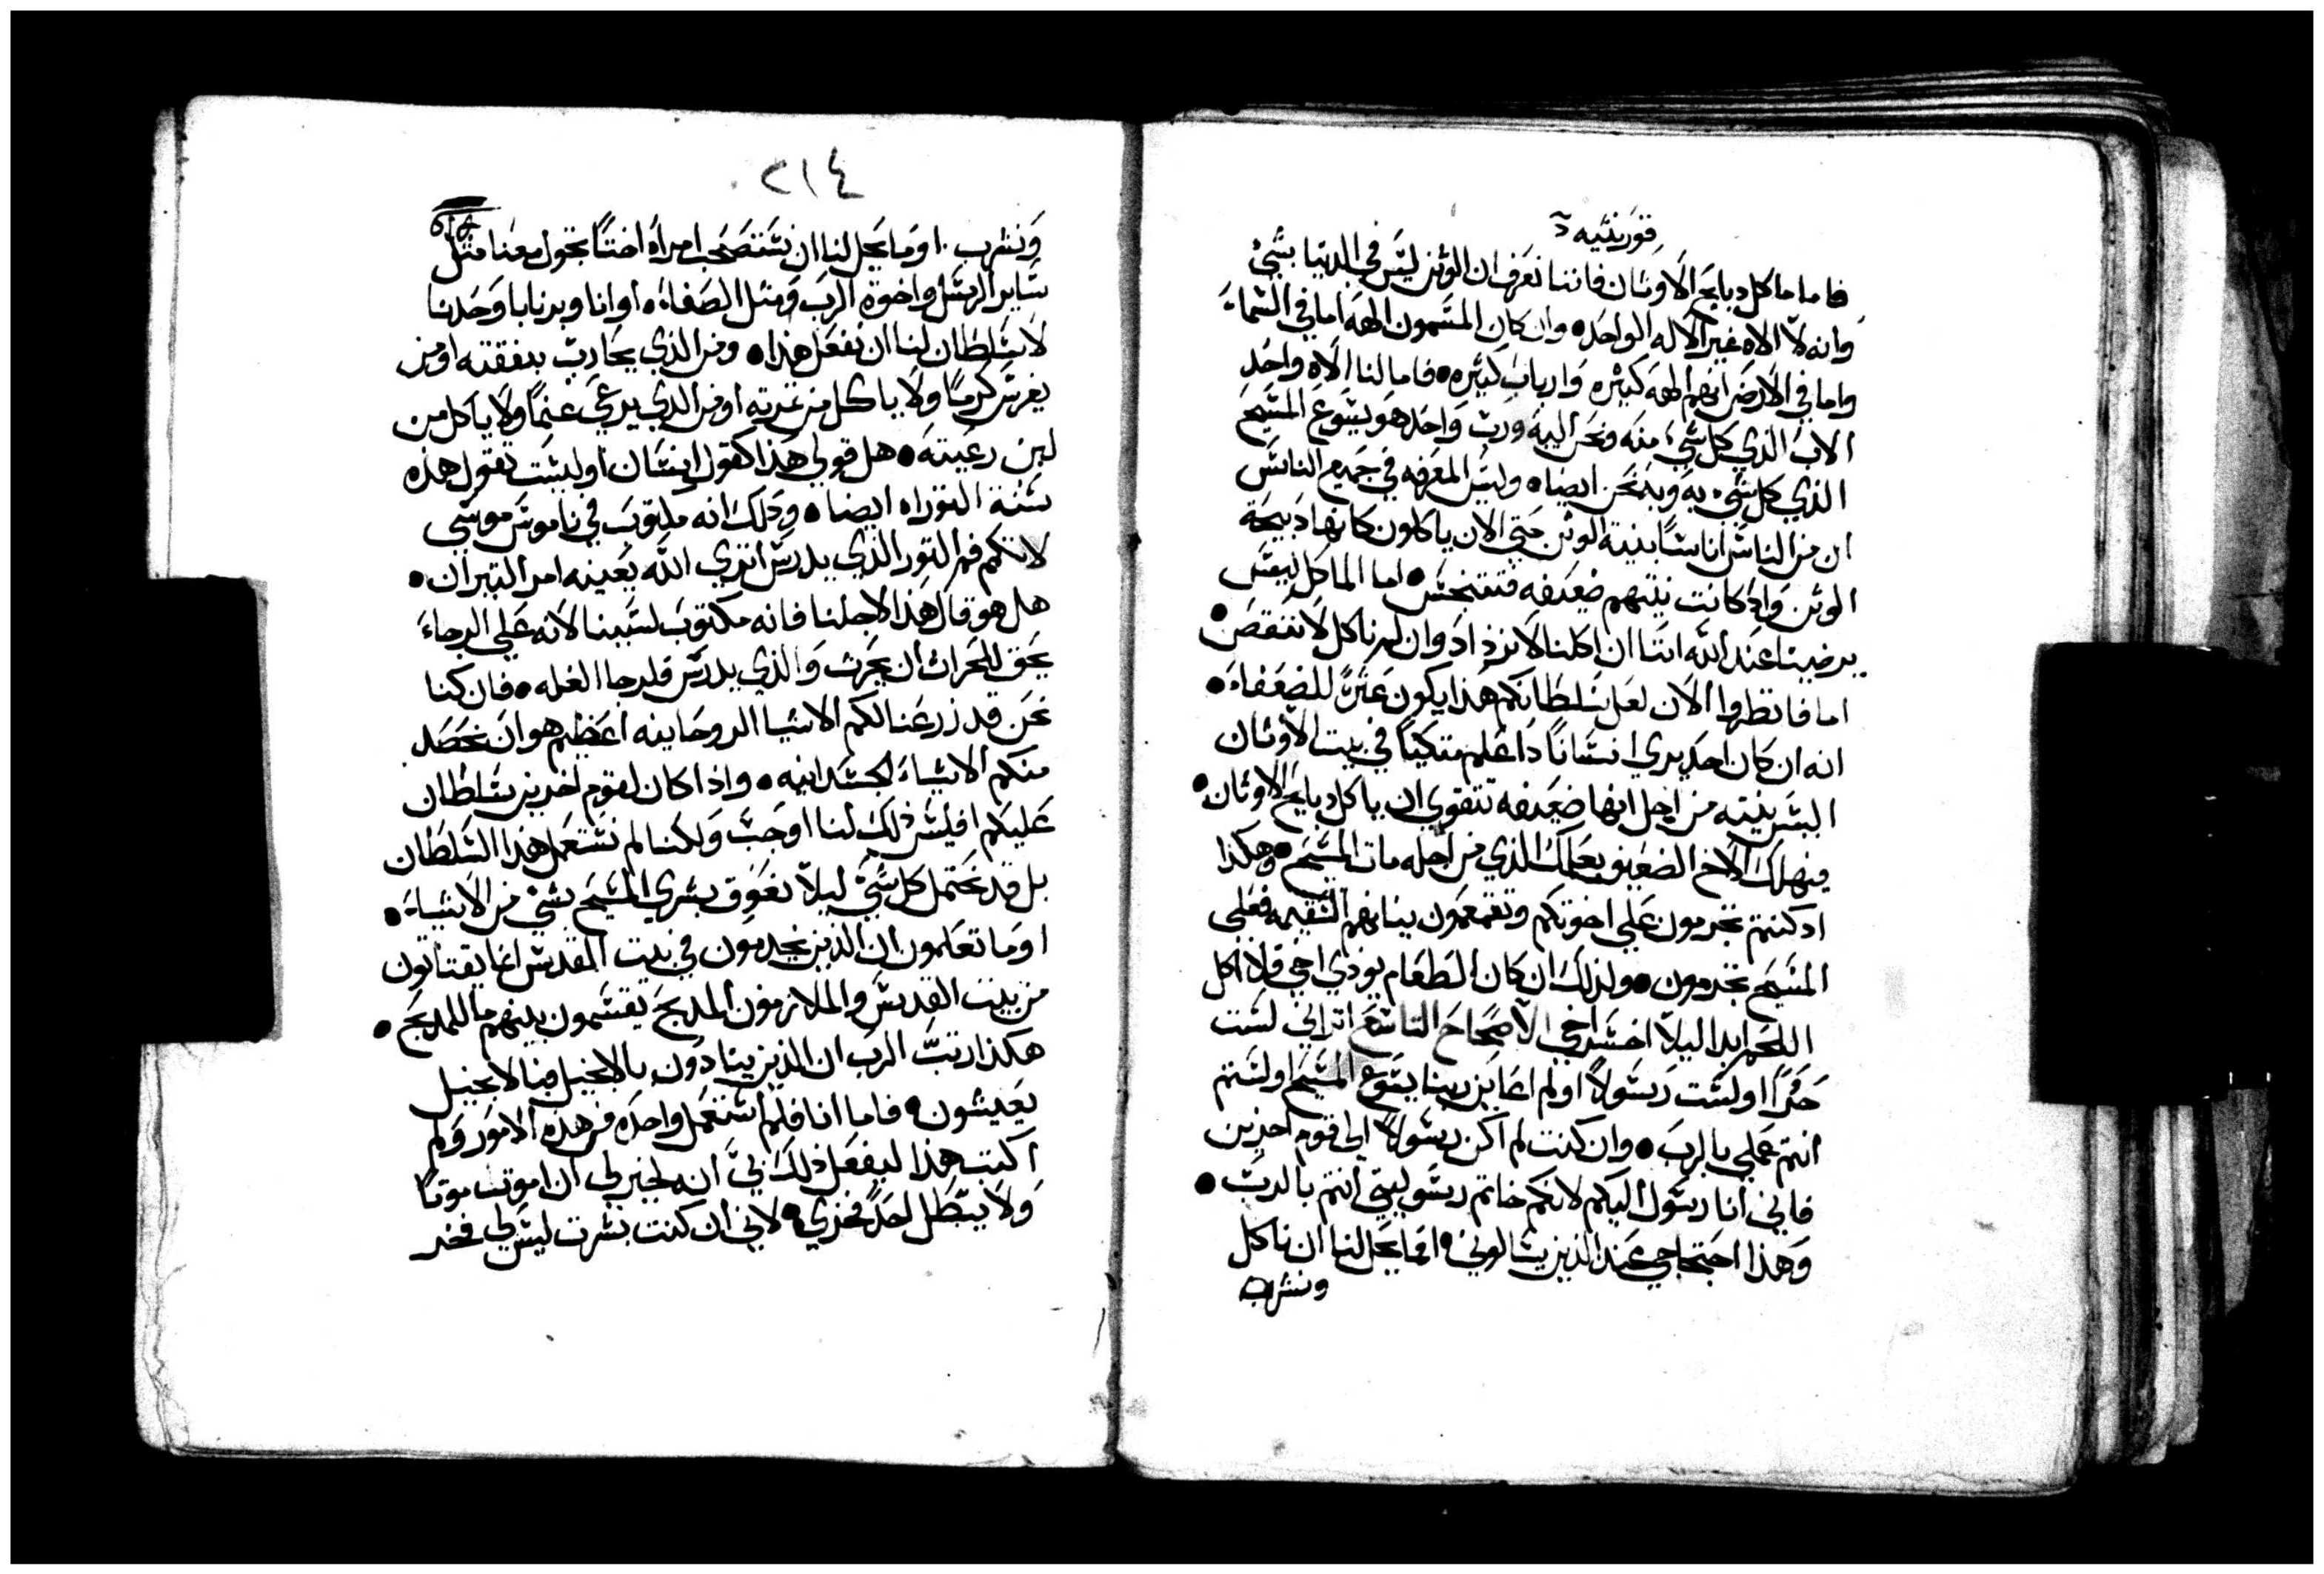 قورنتيه
فاما ماكل دبايح الاوتان فاننا نعرف ان الوتن ليس في الدنيا بشيء
وانه لا الاه غير الاله الواحد • وان كان المسمون الهه اما في السماء
واما في الارض انهم الهه كثيره وارباب كثيره • فاما لنا الاه واحد
الاب الذي كل شيء منه ونحن اليه ورب واحد هو يسوع المسيح
الذي كل شيء به وبه نحن ايضا • وليس المعرفه في جميع الناس
ان من الناس اناسا بنية الوتن حتي الان ياكلون كانها دبيحة
الوتن واد كانت نيتهم ضعيفه فتتنجس • اما الماكل ليس
يرضينا عند الله اننا ان اكلنا لا نزداد وان لم ناكل لا ننقص •
اما فانظروا الان لعل سلطانكم هذا يكون عثرة للضعفاء •
انه ان كان احد يري انسانا دا علم متكيا في بيت الاوتان
اليس نيته من اجل انها ضعيفه تتقوي ان ياكل دبايح الاوتان •
فيهلك الاخ الضعيف بعلمك الذي من اجله مات المسيح • وهكذا
اد كنتم تجرمون علي اخوتكم وتقمعون نياتهم السقيمه فعلي
المسيح تجرمون • ولذلك ان كان الطعام يودي اخي فلا اكل
اللحم ابدا ليلا اخسر اخي الاصحاح التاسع اتراني لست
حرا او لست رسولا او لم اعاين ربنا يسوع المسيح او لستم
انتم عملي بالرب • وان كنت لم اكن رسولا الي قوم اخرين
فاني انا رسول اليكم لانكم خاتم رسوليتي انتم بالرب •
وهذا احتجاجي عند الذين يسالوني • اما يحل لنا ان ناكل
ونشرب
٢١٤
ونشرب • اوما يحل لنا ان نستصحب امراة اختا تجول معنا مثل
ساير الرسل واخوة الرب ومثل الصفاه • او انا وبرنابا وحدنا
لا سلطان لنا ان نفعل هذا • ومن الذي يحارب بنفقته او من
يغرس كرما ولا ياكل من تمرته او من الذي يرعي غنما ولا ياكل من
لبن رعيته • هل قولي هذا كقول انسان او ليست تقول هذه
سنة التوراه ايضا • ودلك انه مكتوب في ناموس موسي
لا تكم فم التور الذي يدرس اتري الله يعينه امر التيران •
هل هو قال هذا لاجلنا فانه مكتوب لسببنا لانه علي الرجاء
يحق للحراث ان يحرث والذي يدرس فلرجا الغله • فان كنا
نحن قد زرعنا لكم الاشيا الروحانيه اعظيم هو ان نحصد
منكم الاشياء الجسدانيه • واذا كان لقوم اخرين سلطان
عليكم افليس ذلك لنا اوجب ولكنا لم نستعمل هذا السلطان
بل قد نحتمل كل شيء ليلا نعوق بشري المسيح بشيء من الاشياء •
اوما تعلمون ان الذين يخدمون في بيت المقدس انما يقتاتون
من بيت القدس والملازمون المدبح يقتسمون بينهم ما للمدبح •
هكذا رتب الرب ان الذين ينادون بالانجيل فبالانجيل
يعيشون • فاما انا فلم استعمل واحده من هذه الامور ولم
اكتب هذا ليفعل ذلك بي انه لخير لي ان اموت موتا
ولا يبطل احد فخري • لاني ان كنت بشرت ليس لي فخر